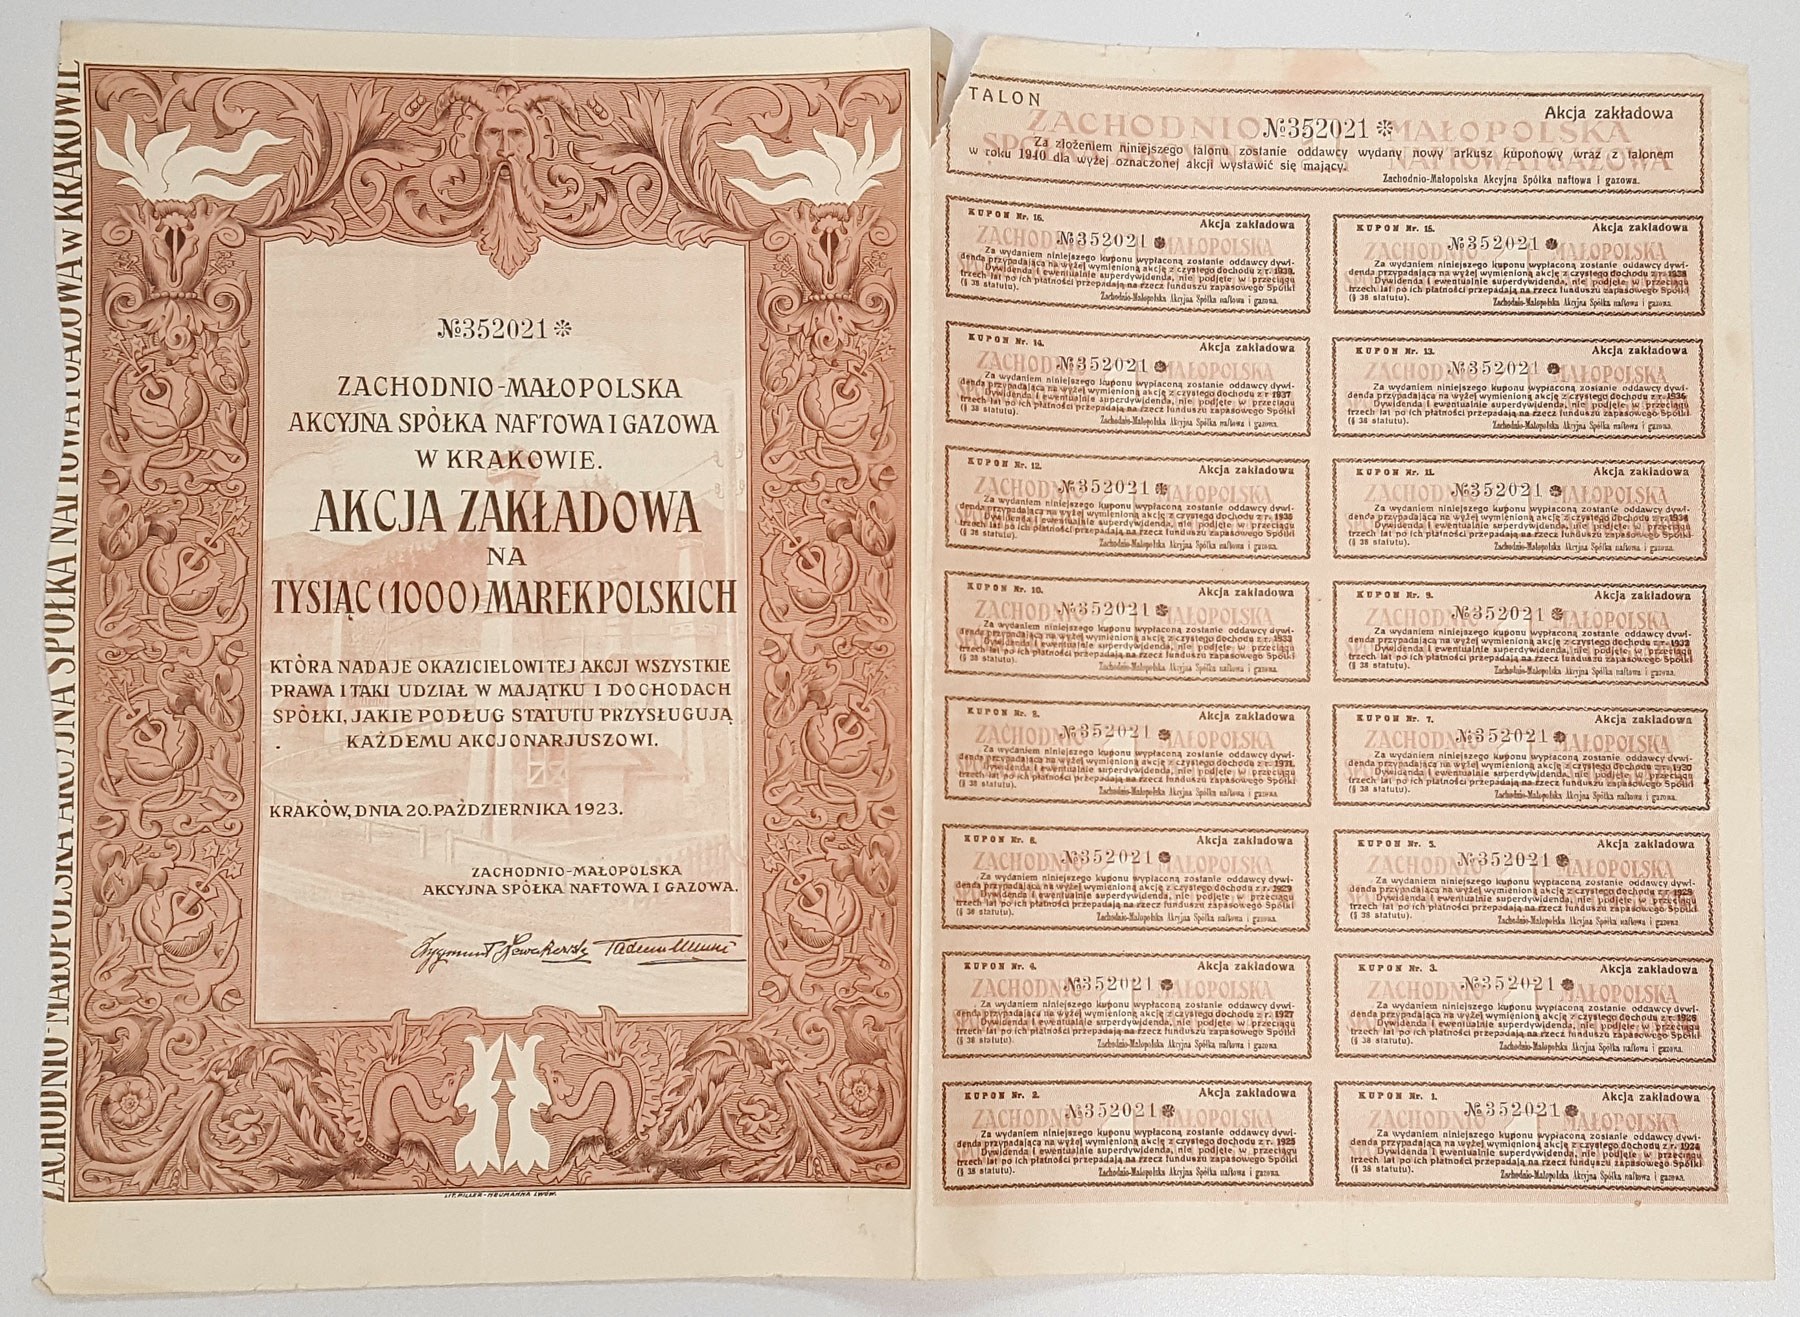 ZACHODNIO-MAŁOPOLSKA AKCYJNA SPÓŁKA NAFTOWA I GAZOWA W KRAKOWIE
№352021
ZACHODNIO-MAŁOPOLSKA
AKCYJNA SPÓŁKA NAFTOWA I GAZOWA
W KRAKOWIE.
AKCJA ZAKŁADOWA
NA
TYSIĄC (1000) MAREK POLSKICH
KTÓRA NADAJE OKAZICIELOWI TEJ AKCJI WSZYSTKIE
PRAWA I TAKI UDZIAŁ W MAJĄTKU I DOCHODACH
SPÓŁKI, JAKIE PODŁUG STATUTU PRZYSŁUGUJĄ
KAŻDEMU AKCJONARJUSZOWI.
KRAKÓW, DNIA 20. PAŹDZIERNIKA 1923.
ZACHODNIO-MAŁOPOLSKA
AKCYJNA SPÓŁKA NAFTOWA I GAZOWA.
LIT. PILLER-NEUMANNA LWÓW.
TALON
Akcja zakładowa
№352021
Za złożeniem niniejszego talonu zostanie oddawcy wydany nowy arkusz kuponowy wraz z talonem
w roku 1940 dla wyżej oznaczonej akcji wystawić się mający.
Zachodnio-Małopolska Akcyjna Spółka naftowa i gazowa.
KUPON Nr. 16. Akcja zakładowa
№352021
Za wydaniem niniejszego kuponu wypłaconą zostanie oddawcy dywi-
denda przypadająca na wyżej wymienioną akcję z czystego dochodu z r. 1939.
Dywidenda i ewentualnie superdywidenda, nie podjęte w przeciągu
trzech lat po ich płatności przepadają na rzecz funduszu zapasowego Spółki
(§ 38 statutu).
Zachodnio-Małopolska Akcyjna Spółka naftowa i gazowa.
KUPON Nr. 15. Akcja zakładowa
№352021
Za wydaniem niniejszego kuponu wypłaconą zostanie oddawcy dywi-
denda przypadająca na wyżej wymienioną akcję z czystego dochodu z r. 1938
Dywidenda i ewentualnie superdywidenda, nie podjęte w przeciągu
trzech lat po ich płatności przepadają na rzecz funduszu zapasowego Spółki
(§ 38 statutu).
Zachodnio-Małopolska Akcyjna Spółka naftowa i gazowa.
KUPON Nr. 14. Akcja zakładowa
№352021
Za wydaniem niniejszego kuponu wypłaconą zostanie oddawcy dywi-
denda przypadająca na wyżej wymienioną akcję z czystego dochodu z r. 1937
Dywidenda i ewentualnie superdywidenda, nie podjęte w przeciągu
trzech lat po ich płatności przepadają na rzecz funduszu zapasowego Spółki
(§ 38 statutu).
Zachodnio-Małopolska Akcyjna Spółka naftowa i gazowa.
KUPON Nr. 13. Akcja zakładowa
№352021
Za wydaniem niniejszego kuponu wypłaconą zostanie oddawcy dywi-
denda przypadająca na wyżej wymienioną akcję z czystego dochodu z r. 1936
Dywidenda i ewentualnie superdywidenda, nie podjęte w przeciągu
trzech lat po ich płatności przepadają na rzecz funduszu zapasowego Spółki
(§ 38 statutu).
Zachodnio-Małopolska Akcyjna Spółka naftowa i gazowa.
KUPON Nr. 12. Akcja zakładowa
№352021
Za wydaniem niniejszego kuponu wypłaconą zostanie oddawcy dywi-
denda przypadająca na wyżej wymienioną akcję z czystego dochodu z r. 1935
Dywidenda i ewentualnie superdywidenda, nie podjęte w przeciągu
trzech lat po ich płatności przepadają na rzecz funduszu zapasowego Spółki
(§ 38 statutu).
Zachodnio-Małopolska Akcyjna Spółka naftowa i gazowa.
KUPON Nr. 11. Akcja zakładowa
№352021
Za wydaniem niniejszego kuponu wypłaconą zostanie oddawcy dywi-
denda przypadająca na wyżej wymienioną akcję z czystego dochodu z r. 1934
Dywidenda i ewentualnie superdywidenda, nie podjęte w przeciągu
trzech lat po ich płatności przepadają na rzecz funduszu zapasowego Spółki
(§ 38 statutu).
Zachodnio-Małopolska Akcyjna Spółka naftowa i gazowa.
KUPON Nr. 10. Akcja zakładowa
№352021
Za wydaniem niniejszego kuponu wypłaconą zostanie oddawcy dywi-
denda przypadająca na wyżej wymienioną akcję z czystego dochodu z r. 1933
Dywidenda i ewentualnie superdywidenda, nie podjęte w przeciągu
trzech lat po ich płatności przepadają na rzecz funduszu zapasowego Spółki
(§ 38 statutu).
Zachodnio-Małopolska Akcyjna Spółka naftowa i gazowa.
KUPON Nr. 9. Akcja zakładowa
№352021
Za wydaniem niniejszego kuponu wypłaconą zostanie oddawcy dywi-
denda przypadająca na wyżej wymienioną akcję z czystego dochodu z r. 1932
Dywidenda i ewentualnie superdywidenda, nie podjęte w przeciągu
trzech lat po ich płatności przepadają na rzecz funduszu zapasowego Spółki
(§ 38 statutu).
Zachodnio-Małopolska Akcyjna Spółka naftowa i gazowa.
KUPON Nr. 8. Akcja zakładowa
№352021
Za wydaniem niniejszego kuponu wypłaconą zostanie oddawcy dywi-
denda przypadająca na wyżej wymienioną akcję z czystego dochodu z r. 1931
Dywidenda i ewentualnie superdywidenda, nie podjęte w przeciągu
trzech lat po ich płatności przepadają na rzecz funduszu zapasowego Spółki
(§ 38 statutu).
Zachodnio-Małopolska Akcyjna Spółka naftowa i gazowa.
KUPON Nr. 7. Akcja zakładowa
№352021
Za wydaniem niniejszego kuponu wypłaconą zostanie oddawcy dywi-
denda przypadająca na wyżej wymienioną akcję z czystego dochodu z r. 1930
Dywidenda i ewentualnie superdywidenda, nie podjęte w przeciągu
trzech lat po ich płatności przepadają na rzecz funduszu zapasowego Spółki
(§ 38 statutu).
Zachodnio-Małopolska Akcyjna Spółka naftowa i gazowa.
KUPON Nr. 6. Akcja zakładowa
№352021
Za wydaniem niniejszego kuponu wypłaconą zostanie oddawcy dywi-
denda przypadająca na wyżej wymienioną akcję z czystego dochodu z r. 1929
Dywidenda i ewentualnie superdywidenda, nie podjęte w przeciągu
trzech lat po ich płatności przepadają na rzecz funduszu zapasowego Spółki
(§ 38 statutu).
Zachodnio-Małopolska Akcyjna Spółka naftowa i gazowa.
KUPON Nr. 5. Akcja zakładowa
№352021
Za wydaniem niniejszego kuponu wypłaconą zostanie oddawcy dywi-
denda przypadająca na wyżej wymienioną akcję z czystego dochodu z r. 1928
Dywidenda i ewentualnie superdywidenda, nie podjęte w przeciągu
trzech lat po ich płatności przepadają na rzecz funduszu zapasowego Spółki
(§ 38 statutu).
Zachodnio-Małopolska Akcyjna Spółka naftowa i gazowa.
KUPON Nr. 4. Akcja zakładowa
№352021
Za wydaniem niniejszego kuponu wypłaconą zostanie oddawcy dywi-
denda przypadająca na wyżej wymienioną akcję z czystego dochodu z r. 1927
Dywidenda i ewentualnie superdywidenda, nie podjęte w przeciągu
trzech lat po ich płatności przepadają na rzecz funduszu zapasowego Spółki
(§ 38 statutu).
Zachodnio-Małopolska Akcyjna Spółka naftowa i gazowa.
KUPON Nr. 3. Akcja zakładowa
№352021
Za wydaniem niniejszego kuponu wypłaconą zostanie oddawcy dywi-
denda przypadająca na wyżej wymienioną akcję z czystego dochodu z r. 1926
Dywidenda i ewentualnie superdywidenda, nie podjęte w przeciągu
trzech lat po ich płatności przepadają na rzecz funduszu zapasowego Spółki
(§ 38 statutu).
Zachodnio-Małopolska Akcyjna Spółka naftowa i gazowa.
KUPON Nr. 2. Akcja zakładowa
№352021
Za wydaniem niniejszego kuponu wypłaconą zostanie oddawcy dywi-
denda przypadająca na wyżej wymienioną akcję z czystego dochodu z r. 1925
Dywidenda i ewentualnie superdywidenda, nie podjęte w przeciągu
trzech lat po ich płatności przepadają na rzecz funduszu zapasowego Spółki
(§ 38 statutu).
Zachodnio-Małopolska Akcyjna Spółka naftowa i gazowa.
KUPON Nr. 1. Akcja zakładowa
№352021
Za wydaniem niniejszego kuponu wypłaconą zostanie oddawcy dywi-
denda przypadająca na wyżej wymienioną akcję z czystego dochodu z r. 1924
Dywidenda i ewentualnie superdywidenda, nie podjęte w przeciągu
trzech lat po ich płatności przepadają na rzecz funduszu zapasowego Spółki
(§ 38 statutu).
Zachodnio-Małopolska Akcyjna Spółka naftowa i gazowa.